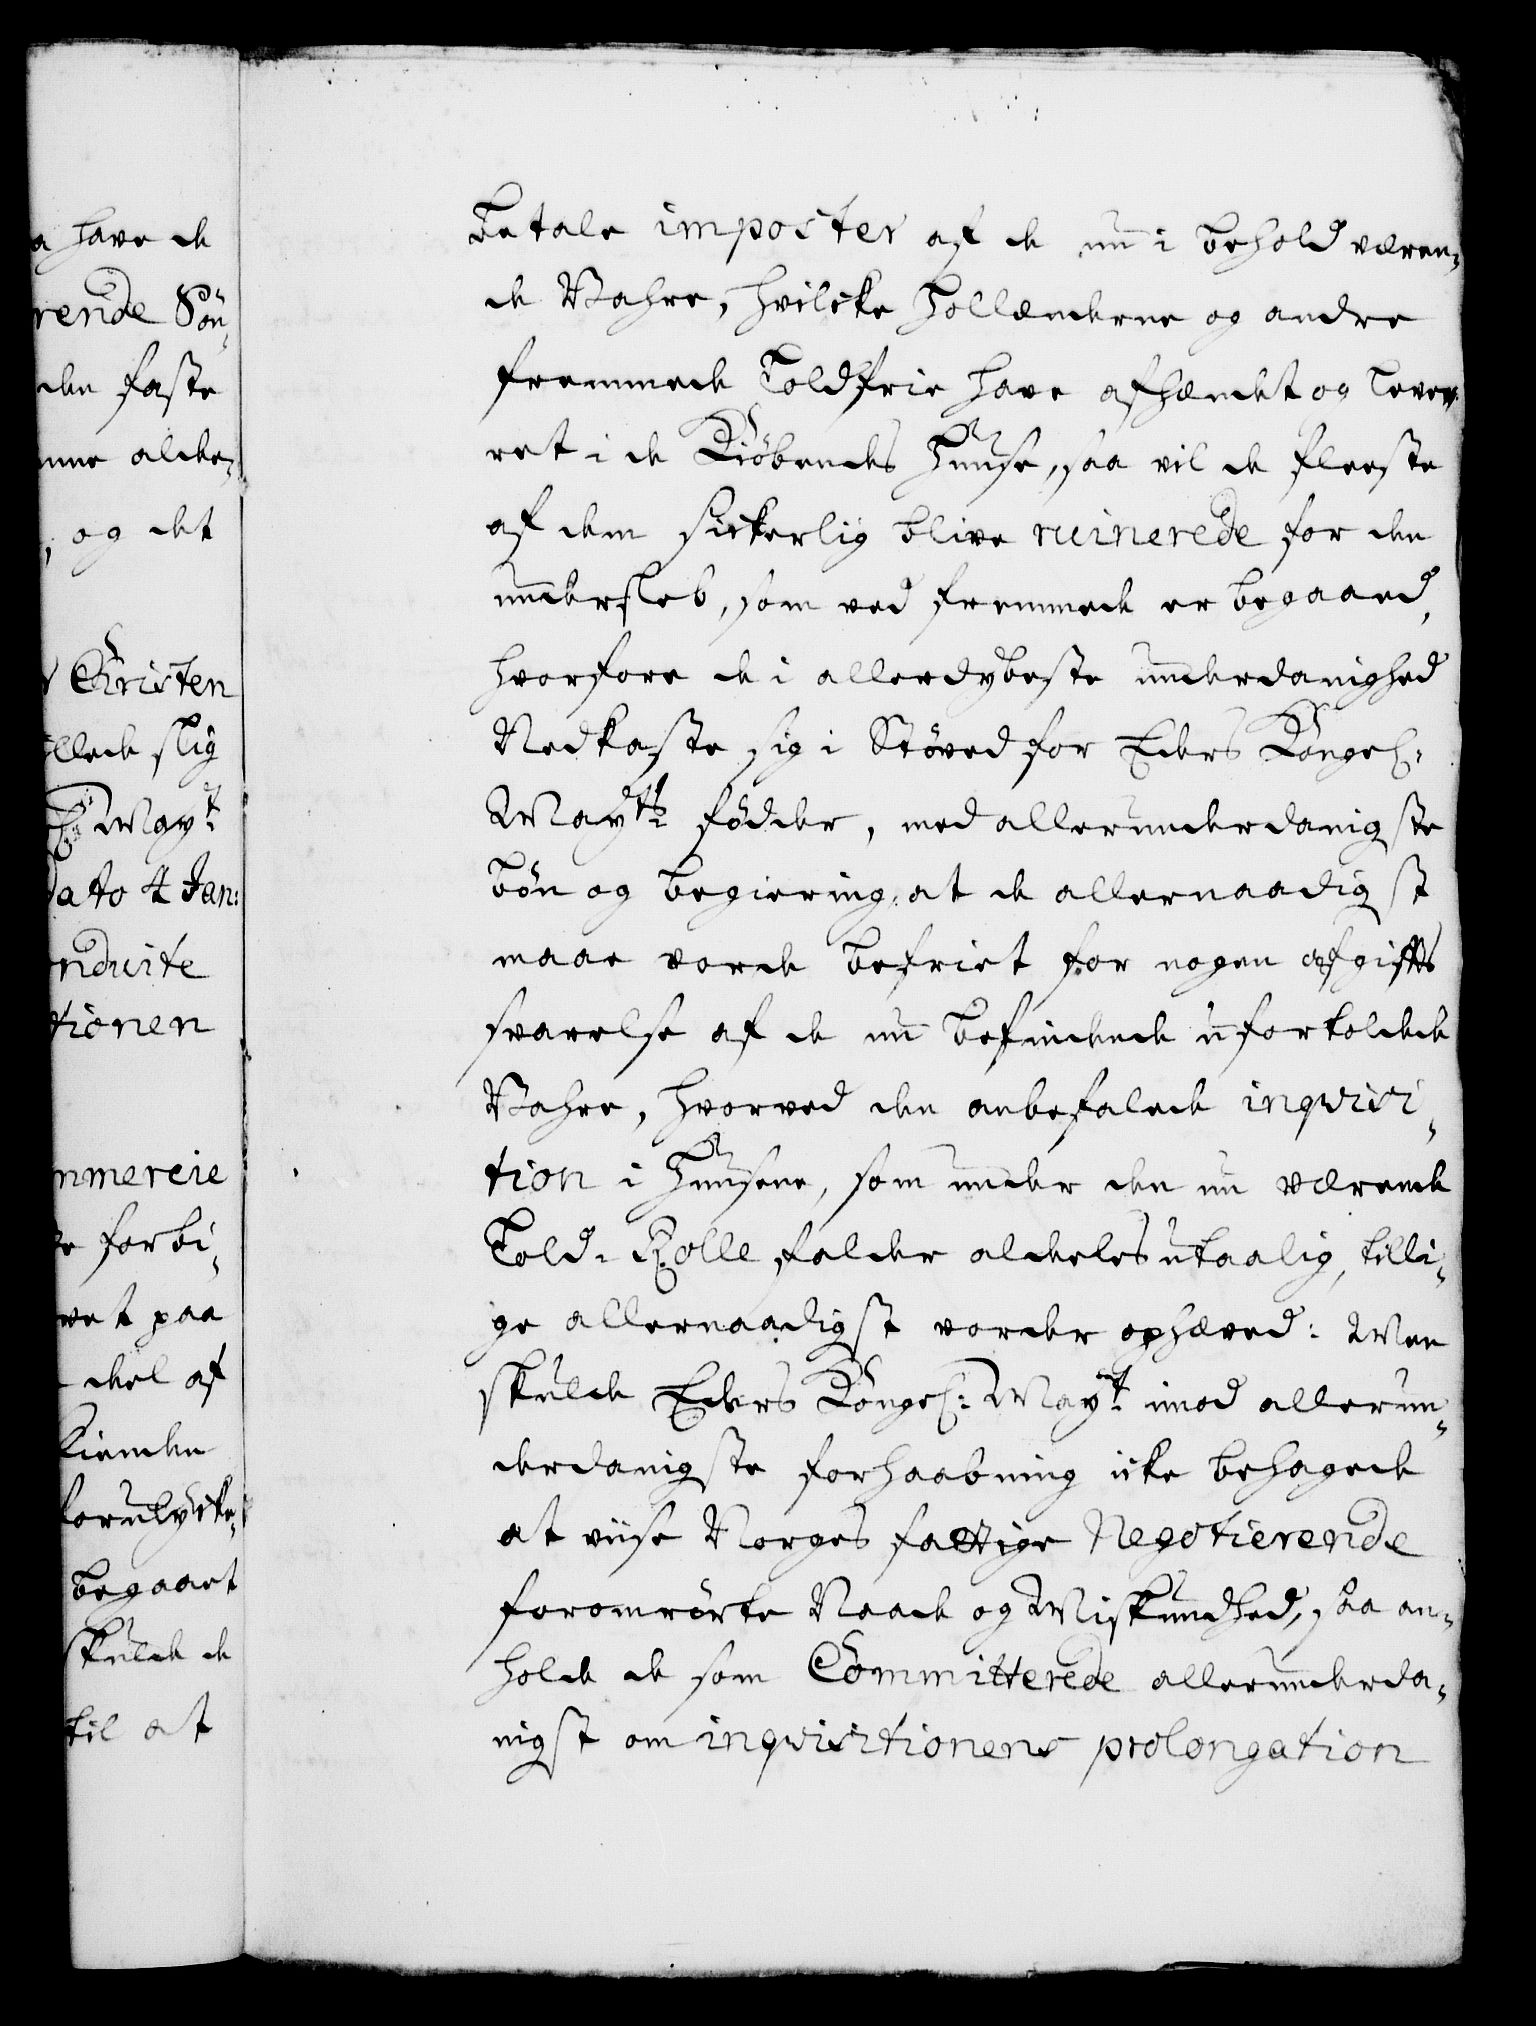 a have de
rende Søn-
den faste
mme alde-
, og det
Christen
llede slig
Mayt:
dato 4 Jan:
nduite
tionen
mmercie
forbi-
vet paa
del af
kienden
forulycke-
begaaet
skulde de
til at
betale imposter af de nu i behold væren-
de Vahre, hvilcke Hollænderne og andre
fremmede Toldfrie have afhændet og lever-
ret i de Kiöbendes Huuse, saa vil de fleeste
af dem sickerlig blive ruinerede for den
undersleb, som ved fremmede er begaaed,
hvorfore de i allerdybeste underdanighed
Nedkaste sig i Stöved for Eders Kongel:
Mayts: födder, med allerunderdanigste
bön og begiering, at de allernaadigst
maae vorde befriet for nogen afgifts
svarelse af de nu befindende ufortoldede
Vahre, hvorved den anbefalede inqvisi-
tion i Huusene, som under den nu værende
Told-Rolle falder aldeles utaalig, tilli-
ge allernaadigst vorder ophæved: Men
skulde Eders Kongel: Mayt: imod allerun-
derdanigste forhaabning icke behagede
at viise Norges fattige Negotierende
foromrörte Naade og Miskundhed, saa an-
holde de som Committerede allerunderda-
nigst om inqvisitionens prolongation